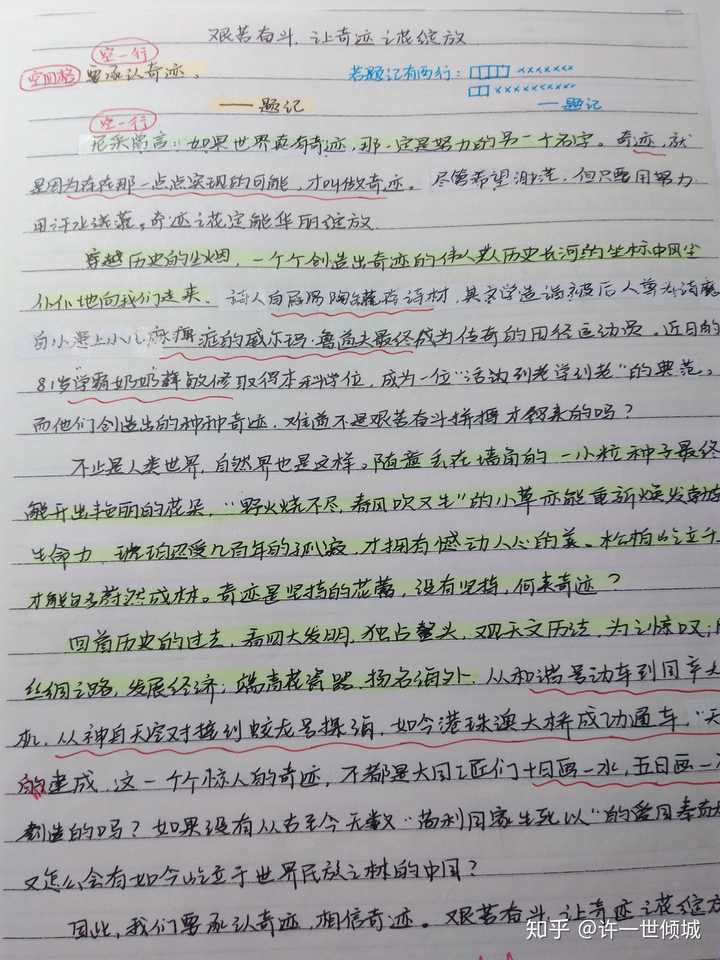 艰苦奋斗,让奇迹之花绽放
空一行
空四格 要承认奇迹。
若题记有两行:□□□□ xxxxxxx
□□ xxxxxxxxxx
——题记
——题记
空一行
尼采寓言:如果世界真有奇迹,那一定是努力的另一个名字。奇迹,就
是因为存在那一点点实现的可能,才叫做奇迹。尽管希望渺茫,但只要用努力
用汗水浇灌,奇迹之花定能华丽绽放.
穿越历史的尘烟,一个个创造出奇迹的伟人从历史长河的坐标中风尘
仆仆地向我们走来。诗人白居易陶罐存诗材,其家学造诣
自小患上小儿麻痹症的威尔玛·鲁道夫最终成为传奇的田径运动员。近日的
81岁学霸奶奶薛敏修取得本科学位,成为一位“活到老学到老”的典范。
而他们创造出的种种奇迹,难道不是艰苦奋斗拼搏才得来的吗?
不止是人类世界,自然界也是这样。随意丢在墙角的一小粒种子最终
能开出艳丽的花朵,“野火烧不尽,春风吹又生”的小草亦能重新焕发勃勃
生命力,琥珀忍受几百年的孤寂,才拥有憾动人心的美。松柏屹立千
才能蔚然成林。奇迹是坚持的花蕾,没有坚持,何来奇迹?
回首历史的过去,看四大发明,独占鳌头,观天文历法,为之惊叹;
丝绸之路,发展经济;瞧青花瓷器,扬名海外.从和谐号动车到国产大
机,从神舟天宫对接到蛟龙号探海,如今港珠澳大桥成功通车,“天
的建成,这一个个惊人的奇迹,不都是大国工匠们十日画一水,五日画一
创造的吗?如果没有从古至今无数“苟利国家生死以”的爱国奉献
又怎么会有如今屹立于世界民族之林的中国?
因此,我们要承认奇迹,相信奇迹。艰苦奋斗,让奇迹之花绽放
知乎 @许一世倾城